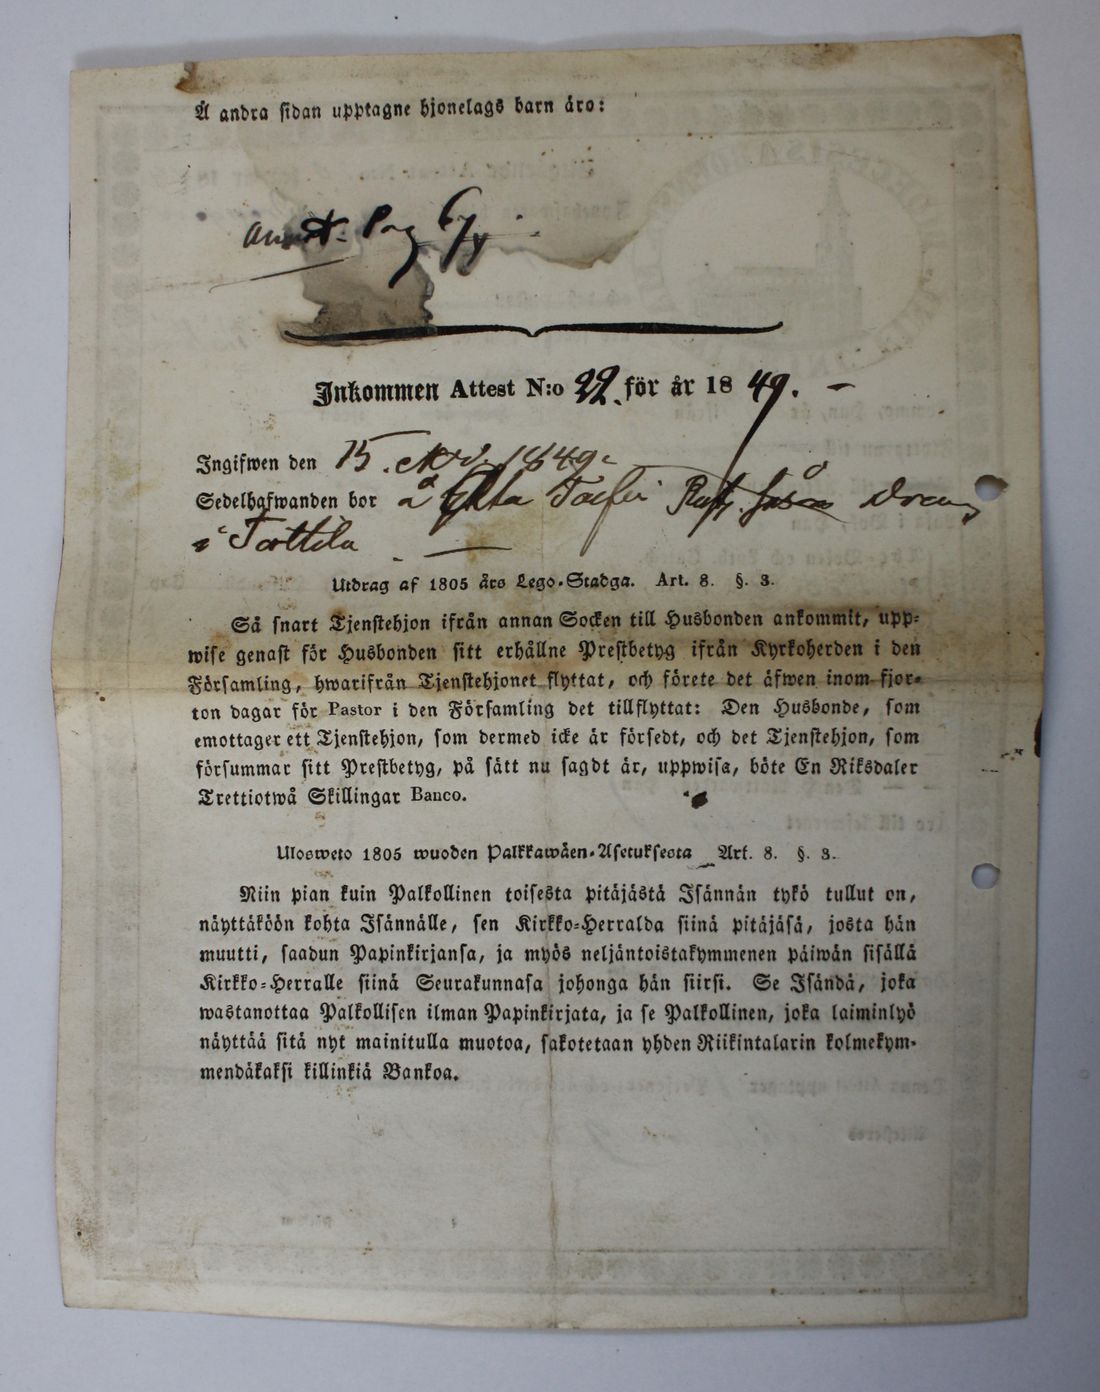 Å andra sidan upptagne hjonelags barn äro:
Inkommen Attest N:o 22. för år 1849. –
Ingifwen den 15. Nov. 1849.
Sedelhafwanden bor å
i Tottila
Utdrag af 1805 års Lego-Stadga. Art. 8. §. 3.
Så snart Tjenstehjon ifrån annan Socken till Husbonden ankommit, upp-
wise genast för Husbonden sitt erhållne Prestbetyg ifrån Kyrkoherden i den
Församling, hwarifrån Tjenstehjonet flyttat, och förete det äfwen inom fjor-
ton dagar för Pastor i den Församling det tillflyttat: Den Husbonde, som
emottager ett Tjenstehjon, som dermed icke är försedt, och det Tjenstehjon, som
försummar sitt Prestbetyg, på sätt nu sagdt är, uppwisa, böte En Riksdaler
Trettiotwå Skillingar Banco.
Ulosweto 1805 wuoden Palkkawäen-Asetuksesta Art. 8. §. 3.
Niin pian kuin Palkollinen toisesta pitäjästä Isännän tykö tullut on,
näyttäköön kohta Isännälle, sen Kirkko-Herralda siinä pitäjäsä, josta hän
muutti, saadun Papinkirjansa, ja myös neljäntoistakymmenen päiwän sisällä
Kirkko-Herralle siinä Seurakunnasa johonga hän siirsi. Se Isändä, joka
wastanottaa Palkollisen ilman Papinkirjata, ja se Palkollinen, joka laiminlyö
näyttää sitä nyt mainitulla muotoa, sakotetaan yhden Riikintalarin kolmekym-
mendäkaksi killinkiä Bankoa.